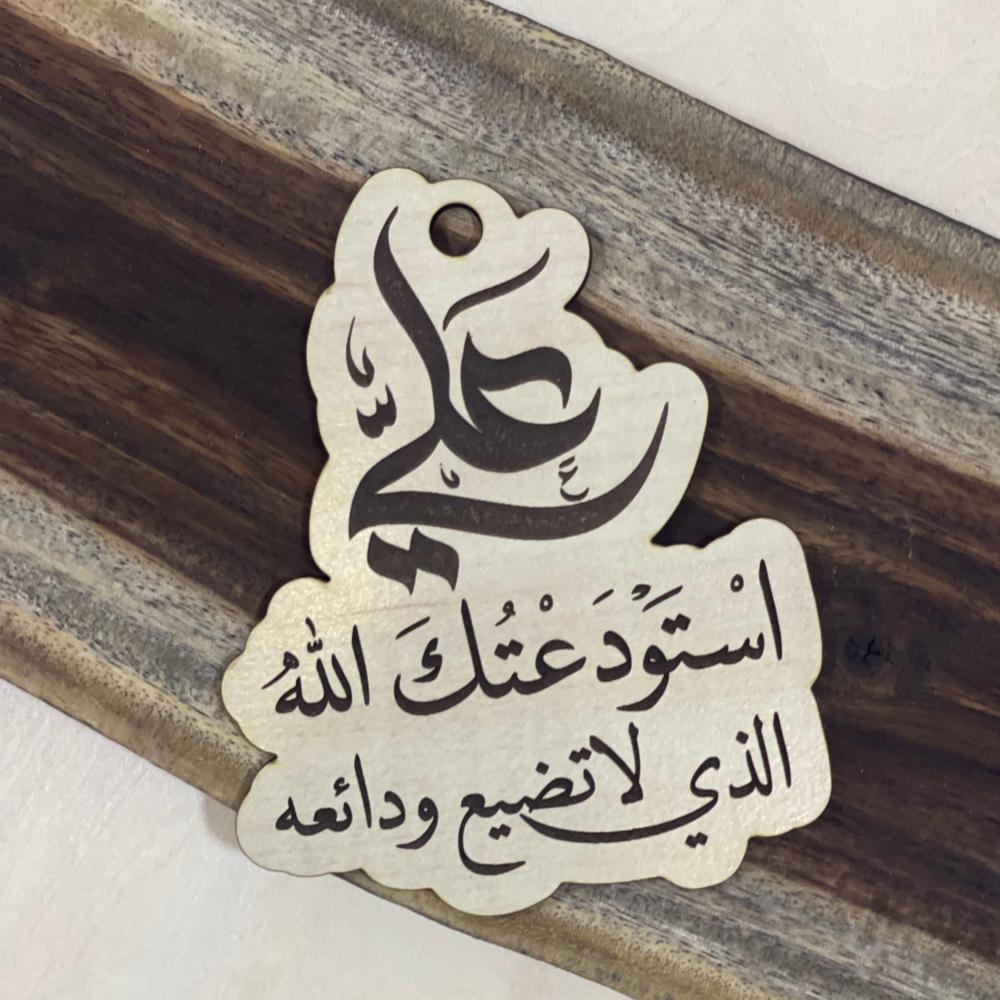 علي
اسْتَوْدَعْتُكَ اللّٰهُ
الذي لا تضيع ودائعه